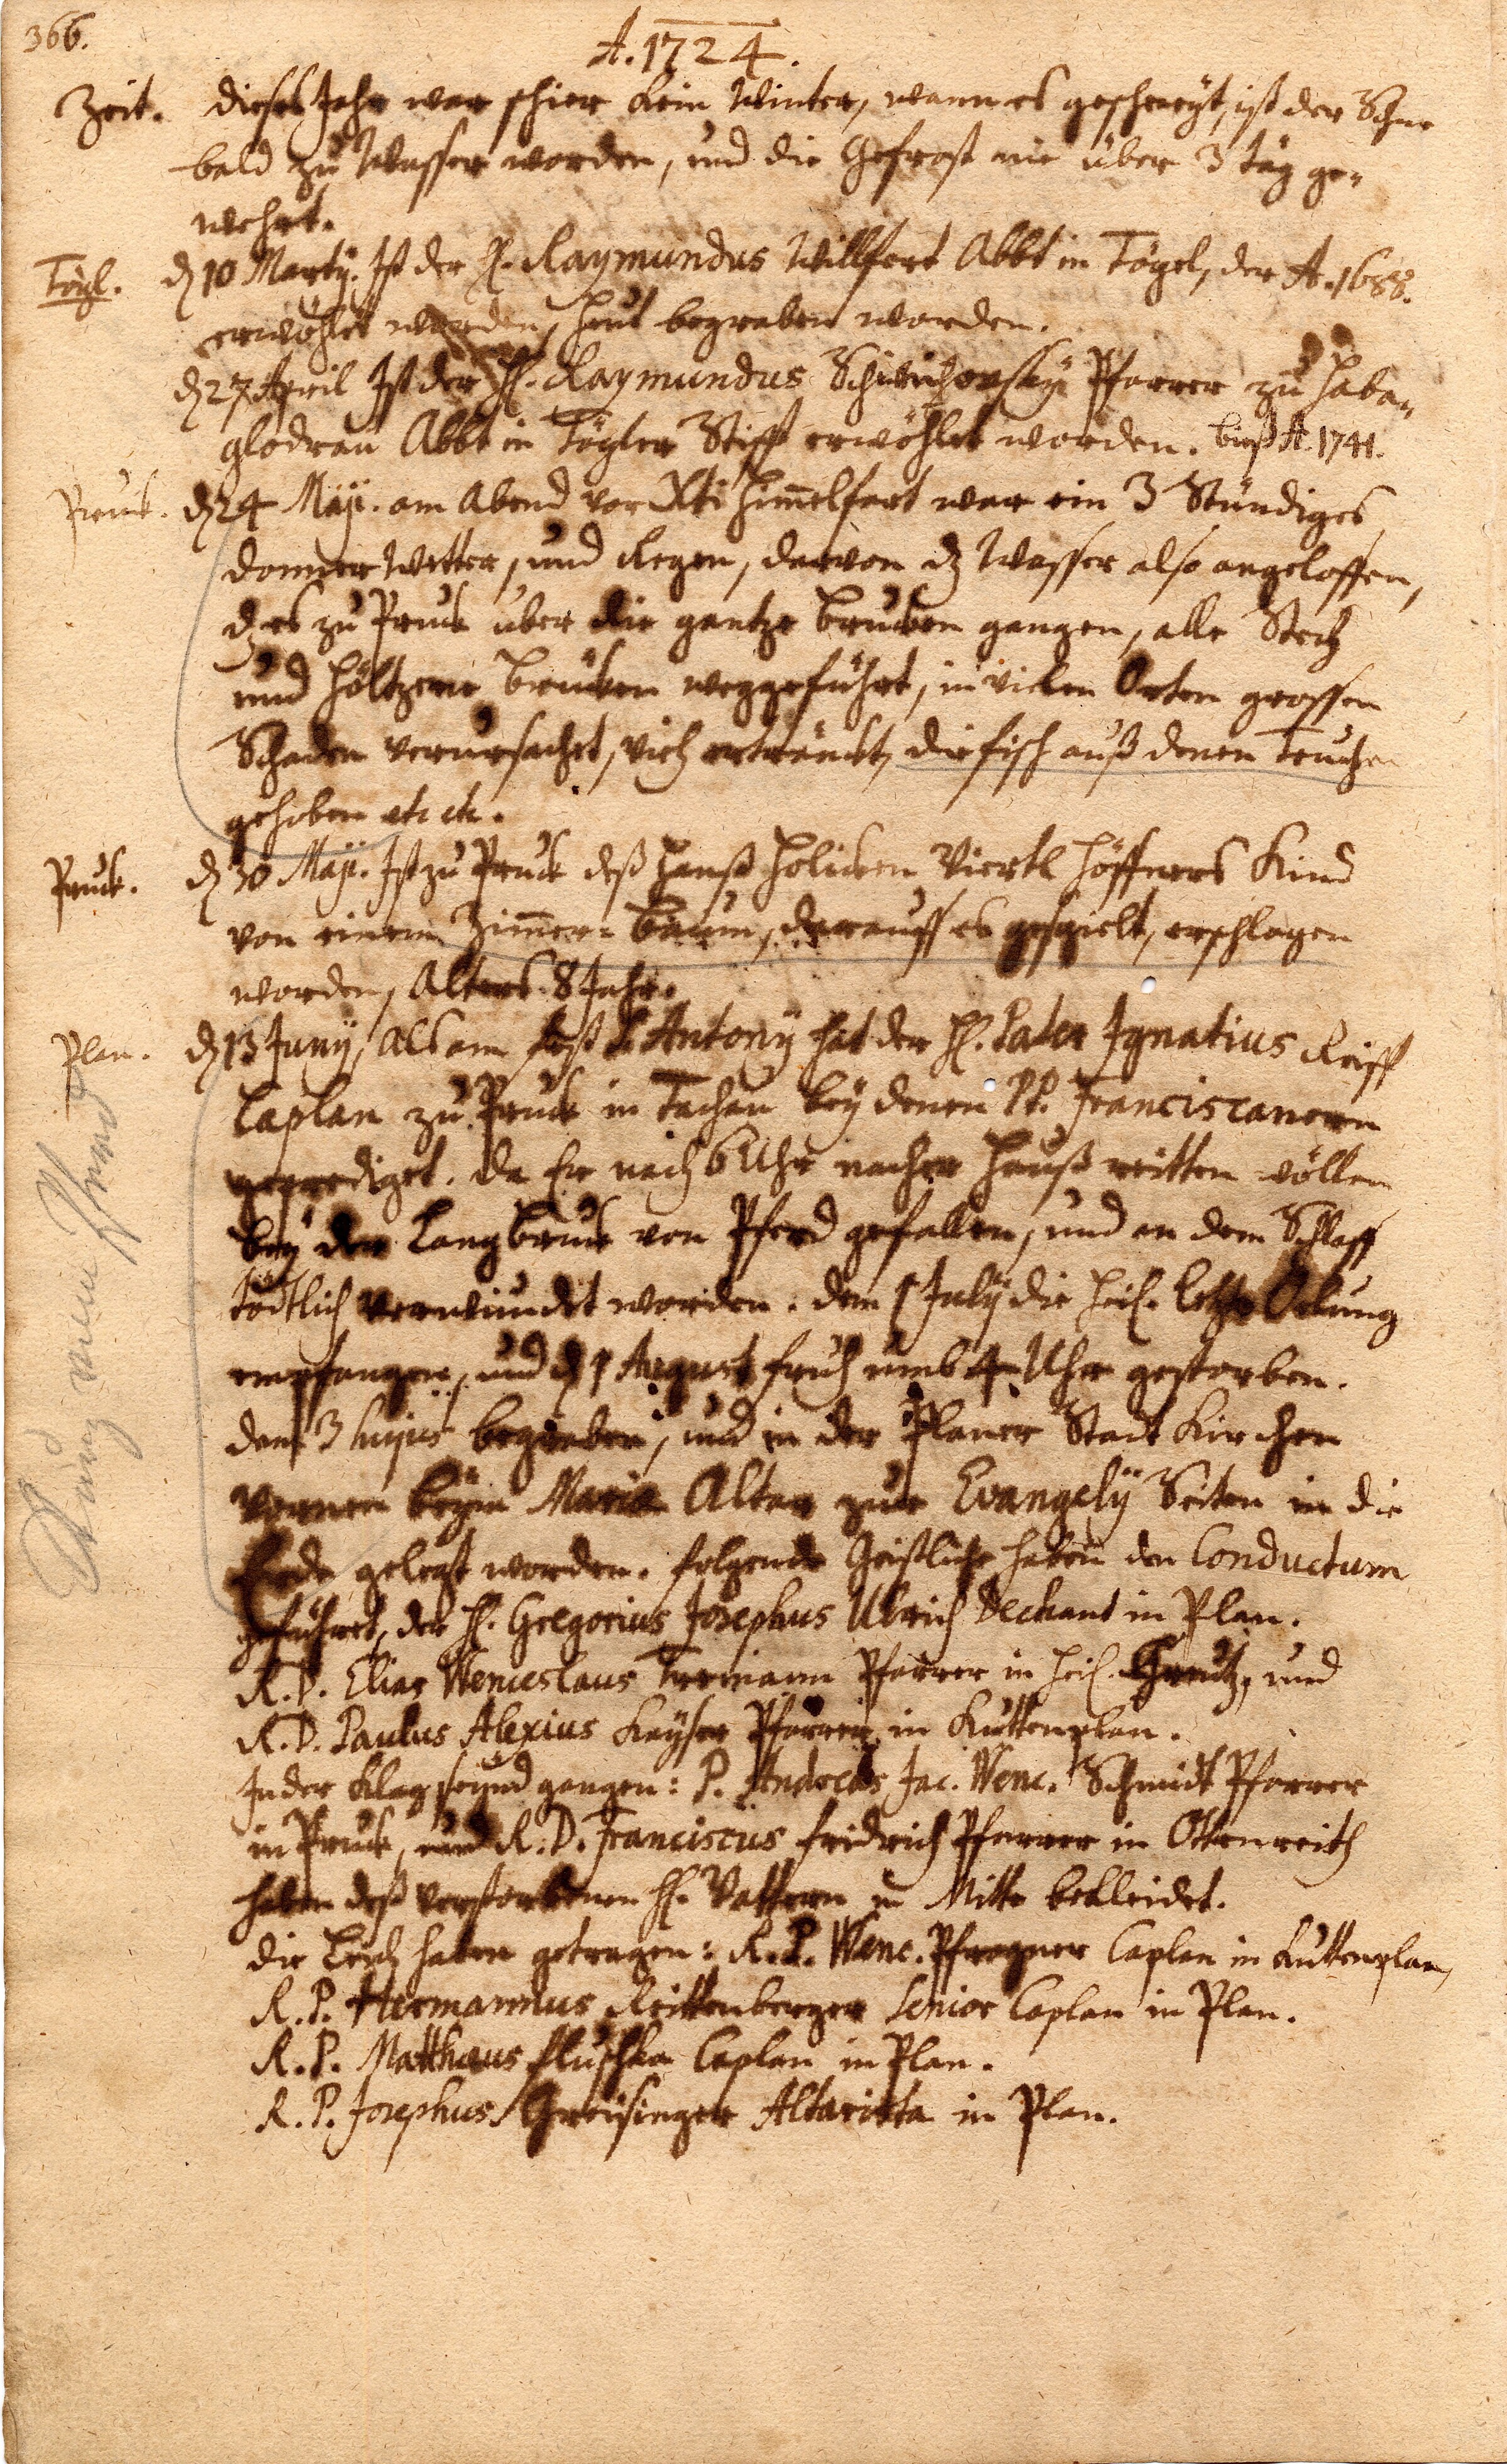 366.
A. 1724.
Zeit. Dieses Jahr war schier kein Winter, wann es geschneyt, ist der Schne
bald zu Wasser worden, und die Gefrost nie über 3 täg ge-
wehrt.
Tögl. d. 10 Martij. Ist der H. Raymundus Willfert Abbt in Tögel, der A. 1688.
erwöhlet worden, heut begraben worden.
d. 27 April Ist der H. Raymundus Pfarrer zu Haba-
gladrau Abbt in Tögler Stifft erwöhlet worden. biß A. 1741.
Pruck. d. 24 Maji. am Abend vor Xti Himmelfart war ein 3 Stündiges
donner Wetter, und Regen, darvon dz Wasser also angeloffen,
dz es zu Pruck über die gantze brucken gangen, alle Steg
und höltzerne brücken weggeführt, in vielen Orten grossen
Schaden verursachet, vieh ertränckt, die fisch auß denen teuchen
gehoben etc etc.
Pruck. d. 30 Maji. Ist zu Pruck deß Hanß Holicken Viertl Höffners Kind
von einem Zimmer-baum, darauff es gespielt, erschlagen
worden, Alters 8 Jahr.
Plan. d. 13 Junij, als am fest S. Antonij hat der H. Pater Ignatius Reiff
Caplan zu Pruck in Tachau bey denen PP. Franciscanern
geprediget. da Er nach 6 Uhr nacher Hauß reitten wöllen
bey der Langbruck von Pferd gefallen, und an dem Schlaff
tödtlich verwundet worden. dem 1 July die heil. letzte Oelung
empfangen, und d. 1 August fruh umb 4 Uhr gestorben.
dem 3 hujus begraben, und in der Planer Stadt Kirchen
vornen beym Mariæ Altar zur Evangelij Seiten in die
Erde gelegt worden. folgende Geistliche haben den Conductum
geführet, der H. Gregorius Josephus Ulrich Dechant in Plan.
R.D. Elias Wenceslaus Pfarrer in heil. Creutz, und
R.D. Paulus Alexius Kayser Pfarrer in Kuttenplan.
In der Klag seynd gangen: P. Andreas Jac. Wenc. Schmidt Pfarrer
in Pruck, und R.D. Franciscus fridrich Pfarrer in Ottenreith
haben deß verstorbenen H. Vattern in Mitte bekleidet.
die Leich haben getragen: R.P. Wenc. Pfragner Caplan in Kuttenplan,
R.P. Hermannus Reittenberger Senior Caplan in Plan.
R.P. Matthæus fluschka Caplan in Plan.
R.P. Josephus Greisinger Altarista in Plan.